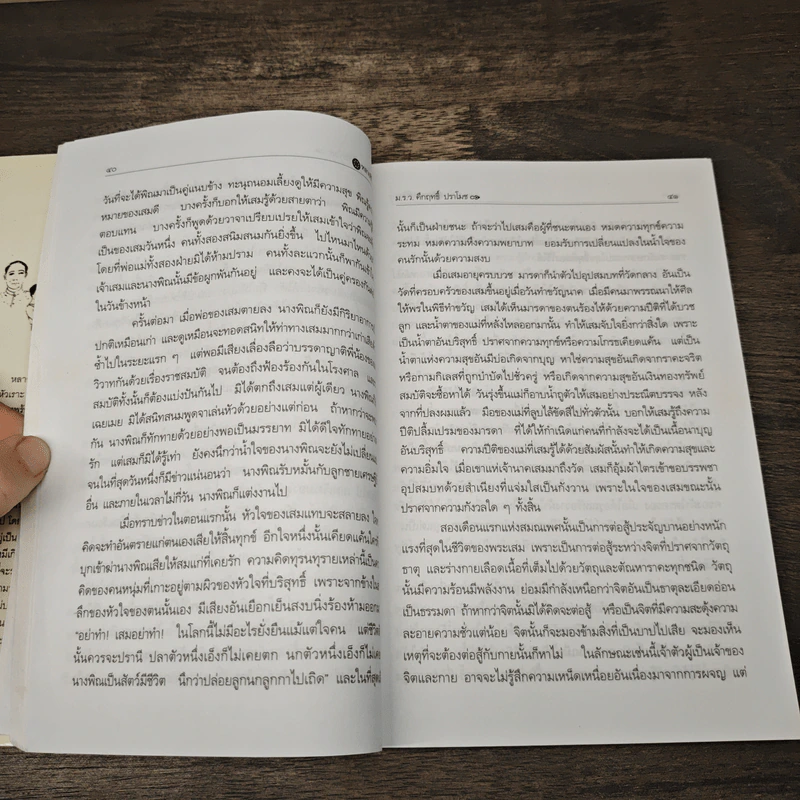 ๔๐
วันที่จะได้พิณมาเป็นคู่แนบข้าง ทะนุถนอมเลี้ยงดูให้มีความสุข พิณก็รู้
หมายของเสมดี บางครั้งก็บอกให้เสมรู้ด้วยสายตาว่า พิณมีความรู้
ตอบแทน บางครั้งก็พูดด้วยวาจาเปรียบเปรยให้เสมเข้าใจว่าพิณ
เป็นของเสมวันหนึ่ง คนทั้งสองสนิมสนมกันยิ่งขึ้น ไปไหนมาไหนด้วย
โดยที่พ่อแม่ทั้งสองฝ่ายมิได้ห้ามปราม คนทั้งละแวกนั้นก็พากันเข้าใจ
เจ้าเสมและนางพิณนั้นมีข้อผูกพันกันอยู่ และคงจะได้เป็นคู่ครองกัน
ในวันข้างหน้า
ครั้นต่อมา เมื่อพ่อของเสมตายลง นางพิณก็ยังมีกิริยาอาการ
ปกติเหมือนเก่า และดูเหมือนจะทอดสนิทให้ท่าทางเสมมากกว่าเก่า
ซ้ำไปในระยะแรก ๆ แต่พอมีเสียงเลื่องลือว่าบรรดาญาติพี่น้องของ
วิวาทกันด้วยเรื่องราชสมบัติ จนต้องถึงฟ้องร้องกันในโรงศาล และ
สมบัติทั้งนั้นก็ต้องแบ่งปันกันไป มิได้ตกถึงเสมแต่ผู้เดียว นางพิณ
เฉยเมย มิได้สนิทสนมพูดจาเล่นหัวด้วยอย่างแต่ก่อน ถ้าหากว่าจะพบ
กัน นางพิณก็ทักทายด้วยอย่างพอเป็นมรรยาท มิได้ดีใจทักทายอย่าง
รัก แต่เสมก็มิได้รู้เท่า ยังคงนึกว่าน้ำใจของนางพิณจะยังไม่เปลี่ยน
จนในที่สุดวันหนึ่งก็มีข่าวแน่นอนว่า นางพิณรับหมั้นกับลูกชายเศรษฐี
อื่น และภายในเวลาไม่กี่วัน นางพิณก็แต่งงานไป
เมื่อทราบข่าวในตอนแรกนั้น หัวใจของเสมแทบจะสลายลง
คิดจะทำอันตรายแก่ตนเองเสียให้สิ้นทุกข์ อีกใจหนึ่งนั้นเคียดแค้นใคร่
บุกเข้าฆ่านางพิณเสียให้สมแก่ที่เคยรัก ความคิดทุรนทุรายเหล่านี้เป็น
คิดของคนหนุ่มที่เกาะอยู่ตามผิวของหัวใจที่บริสุทธิ์ เพราะจากข้างใน
ลึกของหัวใจของตนนั้นเอง มีเสียงอันเยือกเย็นสงบนิ่งร้องห้ามออกมา
"อย่าทำ! เสมอย่าทำ! ในโลกนี้ไม่มีอะไรยั่งยืนแม้แต่ใจคน แต่ชีวิต
นั้นควรจะปรานี ปลาตัวหนึ่งเอ็งก็ไม่เคยตก นกตัวหนึ่งเอ็งก็ไม่เคย
นางพิณเป็นสัตว์มีชีวิต นึกว่าปล่อยลูกนกลูกกาไปเถิด" และในที่สุด
ม.ร.ว. คึกฤทธิ์ ปราโมช
๔๑
นั้นก็เป็นฝ่ายชนะ ถ้าจะว่าไปเสมคือผู้ที่ชนะตนเอง หมดความทุกข์ความ
ระทม หมดความหึงความพยาบาท ยอมรับการเปลี่ยนแปลงในน้ำใจของ
คนรักนั้นด้วยความสงบ
เมื่อเสมอายุครบบวช มารดาก็นำตัวไปอุปสมบทที่วัดกลาง อันเป็น
วัดที่ครอบครัวของเสมขึ้นอยู่เมื่อวันทำขวัญนาค เมื่อมีคนมาพรรณนาให้ศีล
ให้พรในพิธีทำขวัญ เสมได้เห็นมารดาของตนร้องไห้ด้วยความปีติที่ได้บวช
ลูก และน้ำตาของแม่ที่หลั่งไหลออกมานั้น ทำให้เสมจับใจยิ่งกว่าสิ่งใด เพราะ
เป็นน้ำตาอันบริสุทธิ์ ปราศจากความทุกข์หรือความโกรธเคียดแค้น แต่เป็น
น้ำตาแห่งความสุขอันมีบ่อเกิดจากบุญ หาใช่ความสุขอันเกิดจากราคะจริต
หรือกามกิเลสที่ถูกบำบัดไปชั่วครู่ หรือเกิดจากความสุขอันเงินทองทรัพย์
สมบัติจะซื้อหาได้ วันรุ่งขึ้นแม่ก็อาบน้ำถูตัวให้เสมอย่างประณีตบรรจง หลัง
จากที่ปลงผมแล้ว มือของแม่ที่ลูบไล้ขัดสีไปทั่วตัวนั้น บอกให้เสมรู้ถึงความ
ปีติปลื้มเปรมของมารดา ที่ได้ให้กำเนิดแก่คนที่กำลังจะได้เป็นเนื้อนาบุญ
อันบริสุทธิ์ ความปีติของแม่ที่เสมรู้ได้ด้วยสัมผัสนั้นทำให้เกิดความสุขและ
ความอิ่มใจ เมื่อเขาแห่เจ้านาคเสมมาถึงวัด เสมก็อุ้มผ้าไตรเข้าขอบรรพชา
อุปสมบทด้วยสำเนียงที่แจ่มใสเป็นกังวาน เพราะในใจของเสมขณะนั้น
ปราศจากความกังวลใด ๆ ทั้งสิ้น
สองเดือนแรกแห่งสมณเพศนั้นเป็นการต่อสู้ประจัญบานอย่างหนัก
แรงที่สุดในชีวิตของพระเสม เพราะเป็นการต่อสู้ระหว่างจิตที่ปราศจากวัตถุ
ธาตุ และร่างกายเลือดเนื้อที่เต็มไปด้วยวัตถุและตัณหาราคะทุกชนิด วัตถุ
นั้นมีความร้อนมีพลังงาน ย่อมมีกำลังเหนือกว่าจิตอันเป็นธาตุละเอียดอ่อน
เป็นธรรมดา ถ้าหากว่าจิตนั้นมิได้คิดจะต่อสู้ หรือเป็นจิตที่มีความสะดุ้งความ
ละอายความชั่วแต่น้อย จิตนั้นก็จะมองข้ามสิ่งที่เป็นบาปไปเสีย จะมองเห็น
เหตุที่จะต้องต่อสู้กับกายนั้นก็หาไม่ ในลักษณะเช่นนี้เจ้าตัวผู้เป็นเจ้าของ
จิตและกาย อาจจะไม่รู้สึกความเหน็ดเหนื่อยอันเนื่องมาจากการผจญ แต่